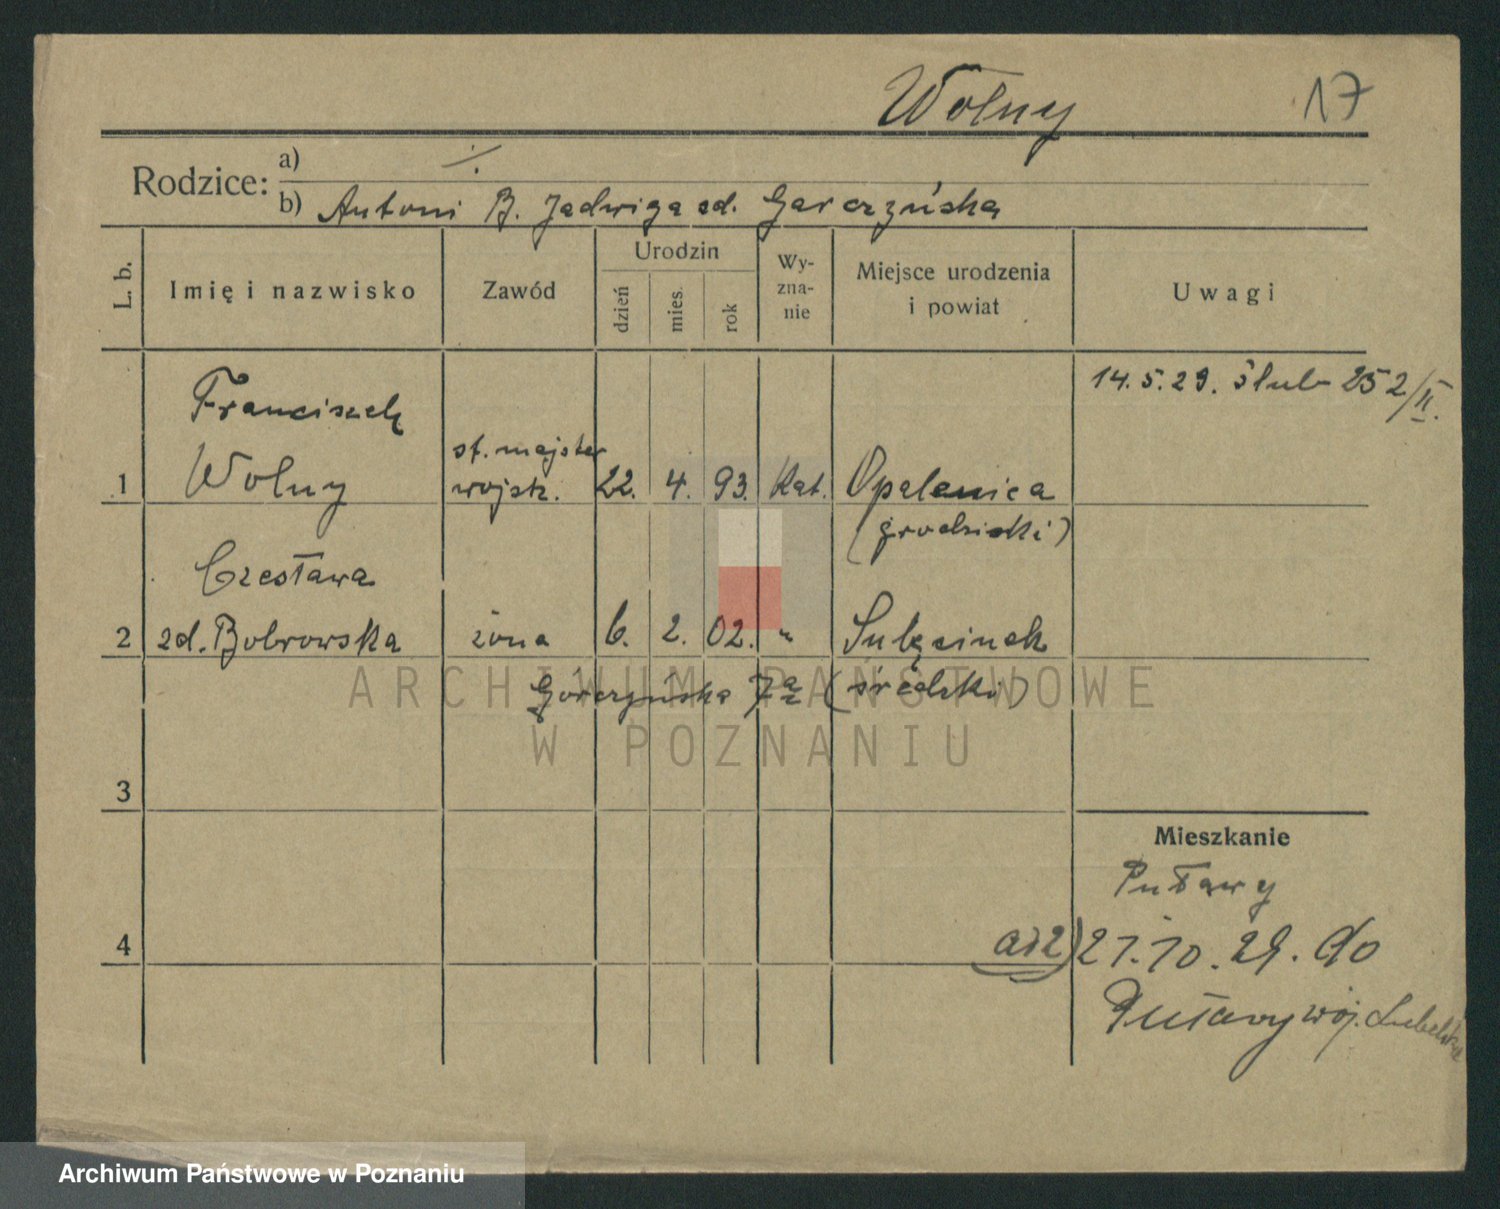 Wolny 17
Rodzice: a) ·/·
b) Antoni B. Jadwiga zd. Garczyńska
L. b. Imię i nazwisko Zawód Urodzin dzień mies. rok Wy-zna-nie Miejsce urodzenia i powiat Uwagi
14.5.29. ślub 252/II.
Franciszek
st. majster
1 Wolny wojsk. 22. 4. 93. Kat. Opalenica
(grodziski)
Czesława
2 zd. Bobrowska żona 6. 2. 02. " Sulęcinek
Górczyńska 7a (średzki)
ARCHIWUM PAŃSTWOWE
W POZNANIU
3
Mieszkanie
Puławy
4 ad 2) 21.10.29. do
Puławy woj. Lubelskie
Archiwum Państwowe w Poznaniu